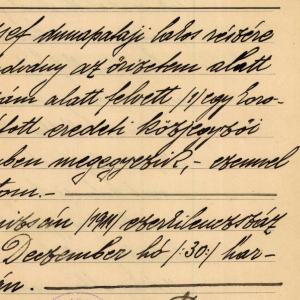 sef dunapataji lakos részére
advány az őrizetem alatt
zám alatt felvett /1/ egy koro-
ított eredeti közjegyzői
ben megegyezik, - ezennel
tom. -
/1911/ ezerkilenczszáz
Deczember hó /:30:/ har-
án.